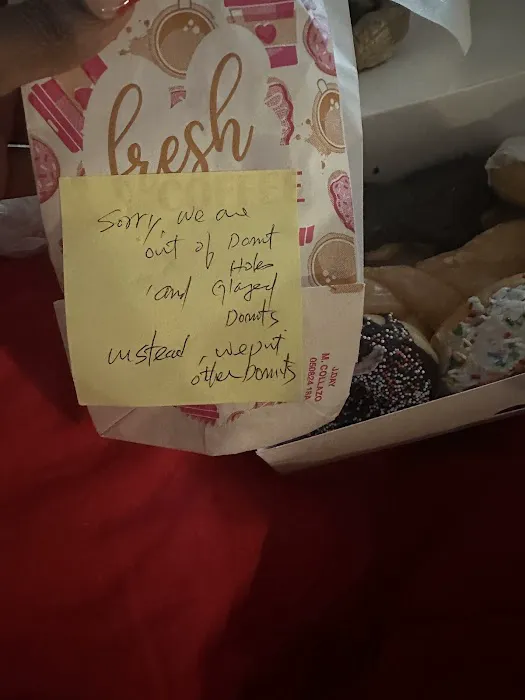 fresh
COFFEE
Sorry, we are
out of Donut
Holes
and Glazed
Donuts
instead, we put
other Donuts
JENY
M. COLLAZO